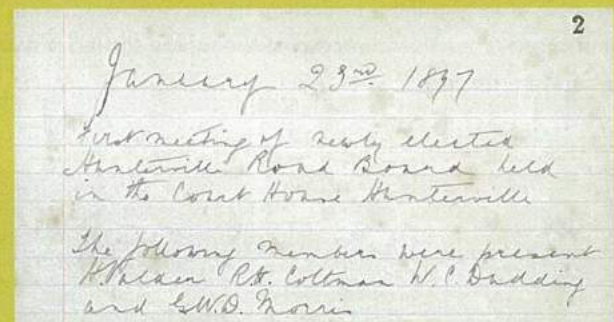 2
January 23rd. 1897
First meeting of newly elected
Hunterville Road Board held
in the Court House Hunterville
The following members were present
R.H. Coltman W.C. Dudding
and G.W.D. Morris